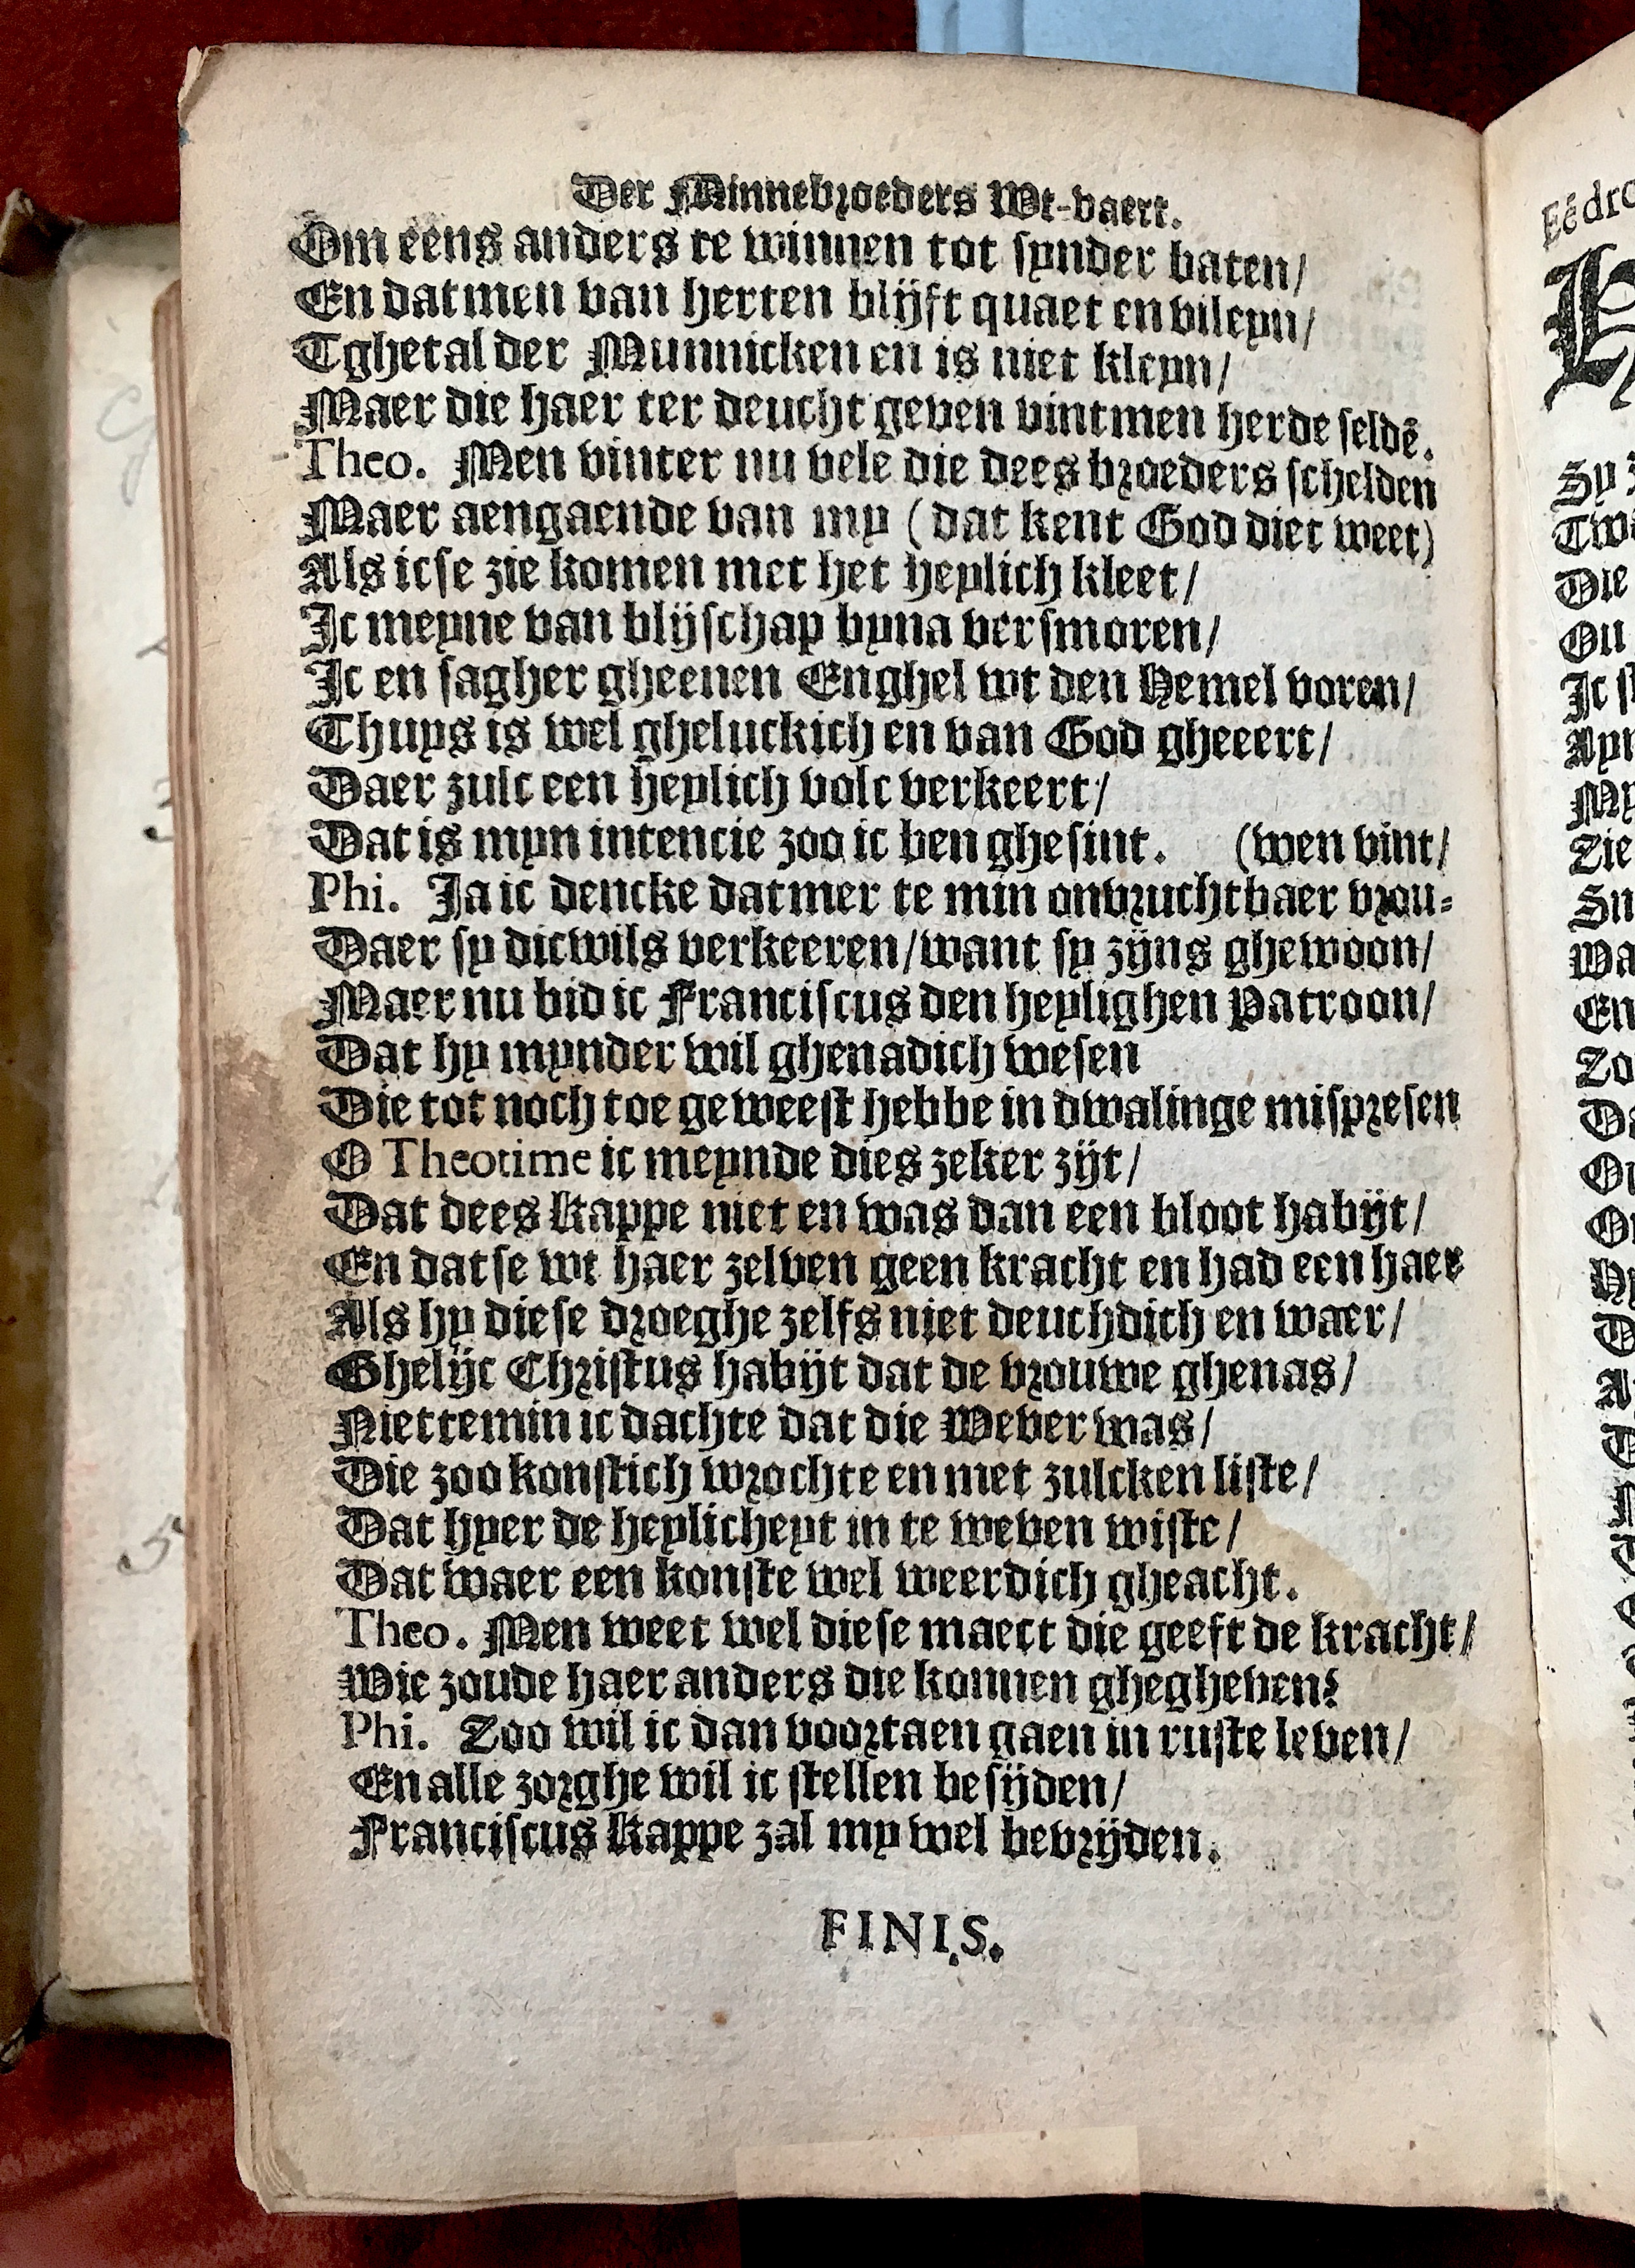 Der Minnebroeders Wt-vaert.
Om eens anders te winnen tot synder baten/
En datmen van herten blijft quaet en vileyn/
Tghetal der Munnicken en is niet kleyn/
Maer die haer ter deucht geven vintmen herde seldē.
Theo. Men vinter nu vele die dees broeders schelden
Maer aengaende van my (dat kent God diet weet)
Als icse zie komen met het heylich kleet/
Ic meyne van blijschap byna versmoren/
Ic en sagher gheenen Enghel wt den Hemel voren/
Thuys is wel gheluckich en van God gheeert/
Daer zulc een heylich volc verkeert/
Dat is myn intencie zoo ic ben ghesint. (wen vint/
Phi. Ja ic dencke datmer te min onvruchtbaer vrou-
Daer sy dicwils verkeeren/want sy zijns ghewoon/
Maer nu bid ic Franciscus den heylighen Patroon/
Dat hy mynder wil ghenadich wesen
Die tot noch toe geweest hebbe in dwalinge mispresen
O Theotime ic meynde dies zeker zijt/
Dat dees Kappe niet en was dan een bloot habijt/
En datse wt haer zelven geen kracht en had een haer
Als hy diese droeghe zelfs niet deuchdich en waer/
Ghelijc Christus habijt dat de vrouwe ghenas/
Niettemin ic dachte dat die Wever was/
Die zoo konstich wrochte en met zulcken liste/
Dat hyer de heylicheyt in te weven wiste/
Dat waer een konste wel weerdich gheacht.
Theo. Men weet wel diese maect die geeft de kracht/
Wie zoude haer anders die konnen ghegheven?
Phi. Zoo wil ic dan voortaen gaen in ruste leven/
En alle zorghe wil ic stellen besijden/
Franciscus Kappe zal my wel bevrijden.
FINIS.
Sy
Die
On
Ic
Zie
Wa
En
Zo